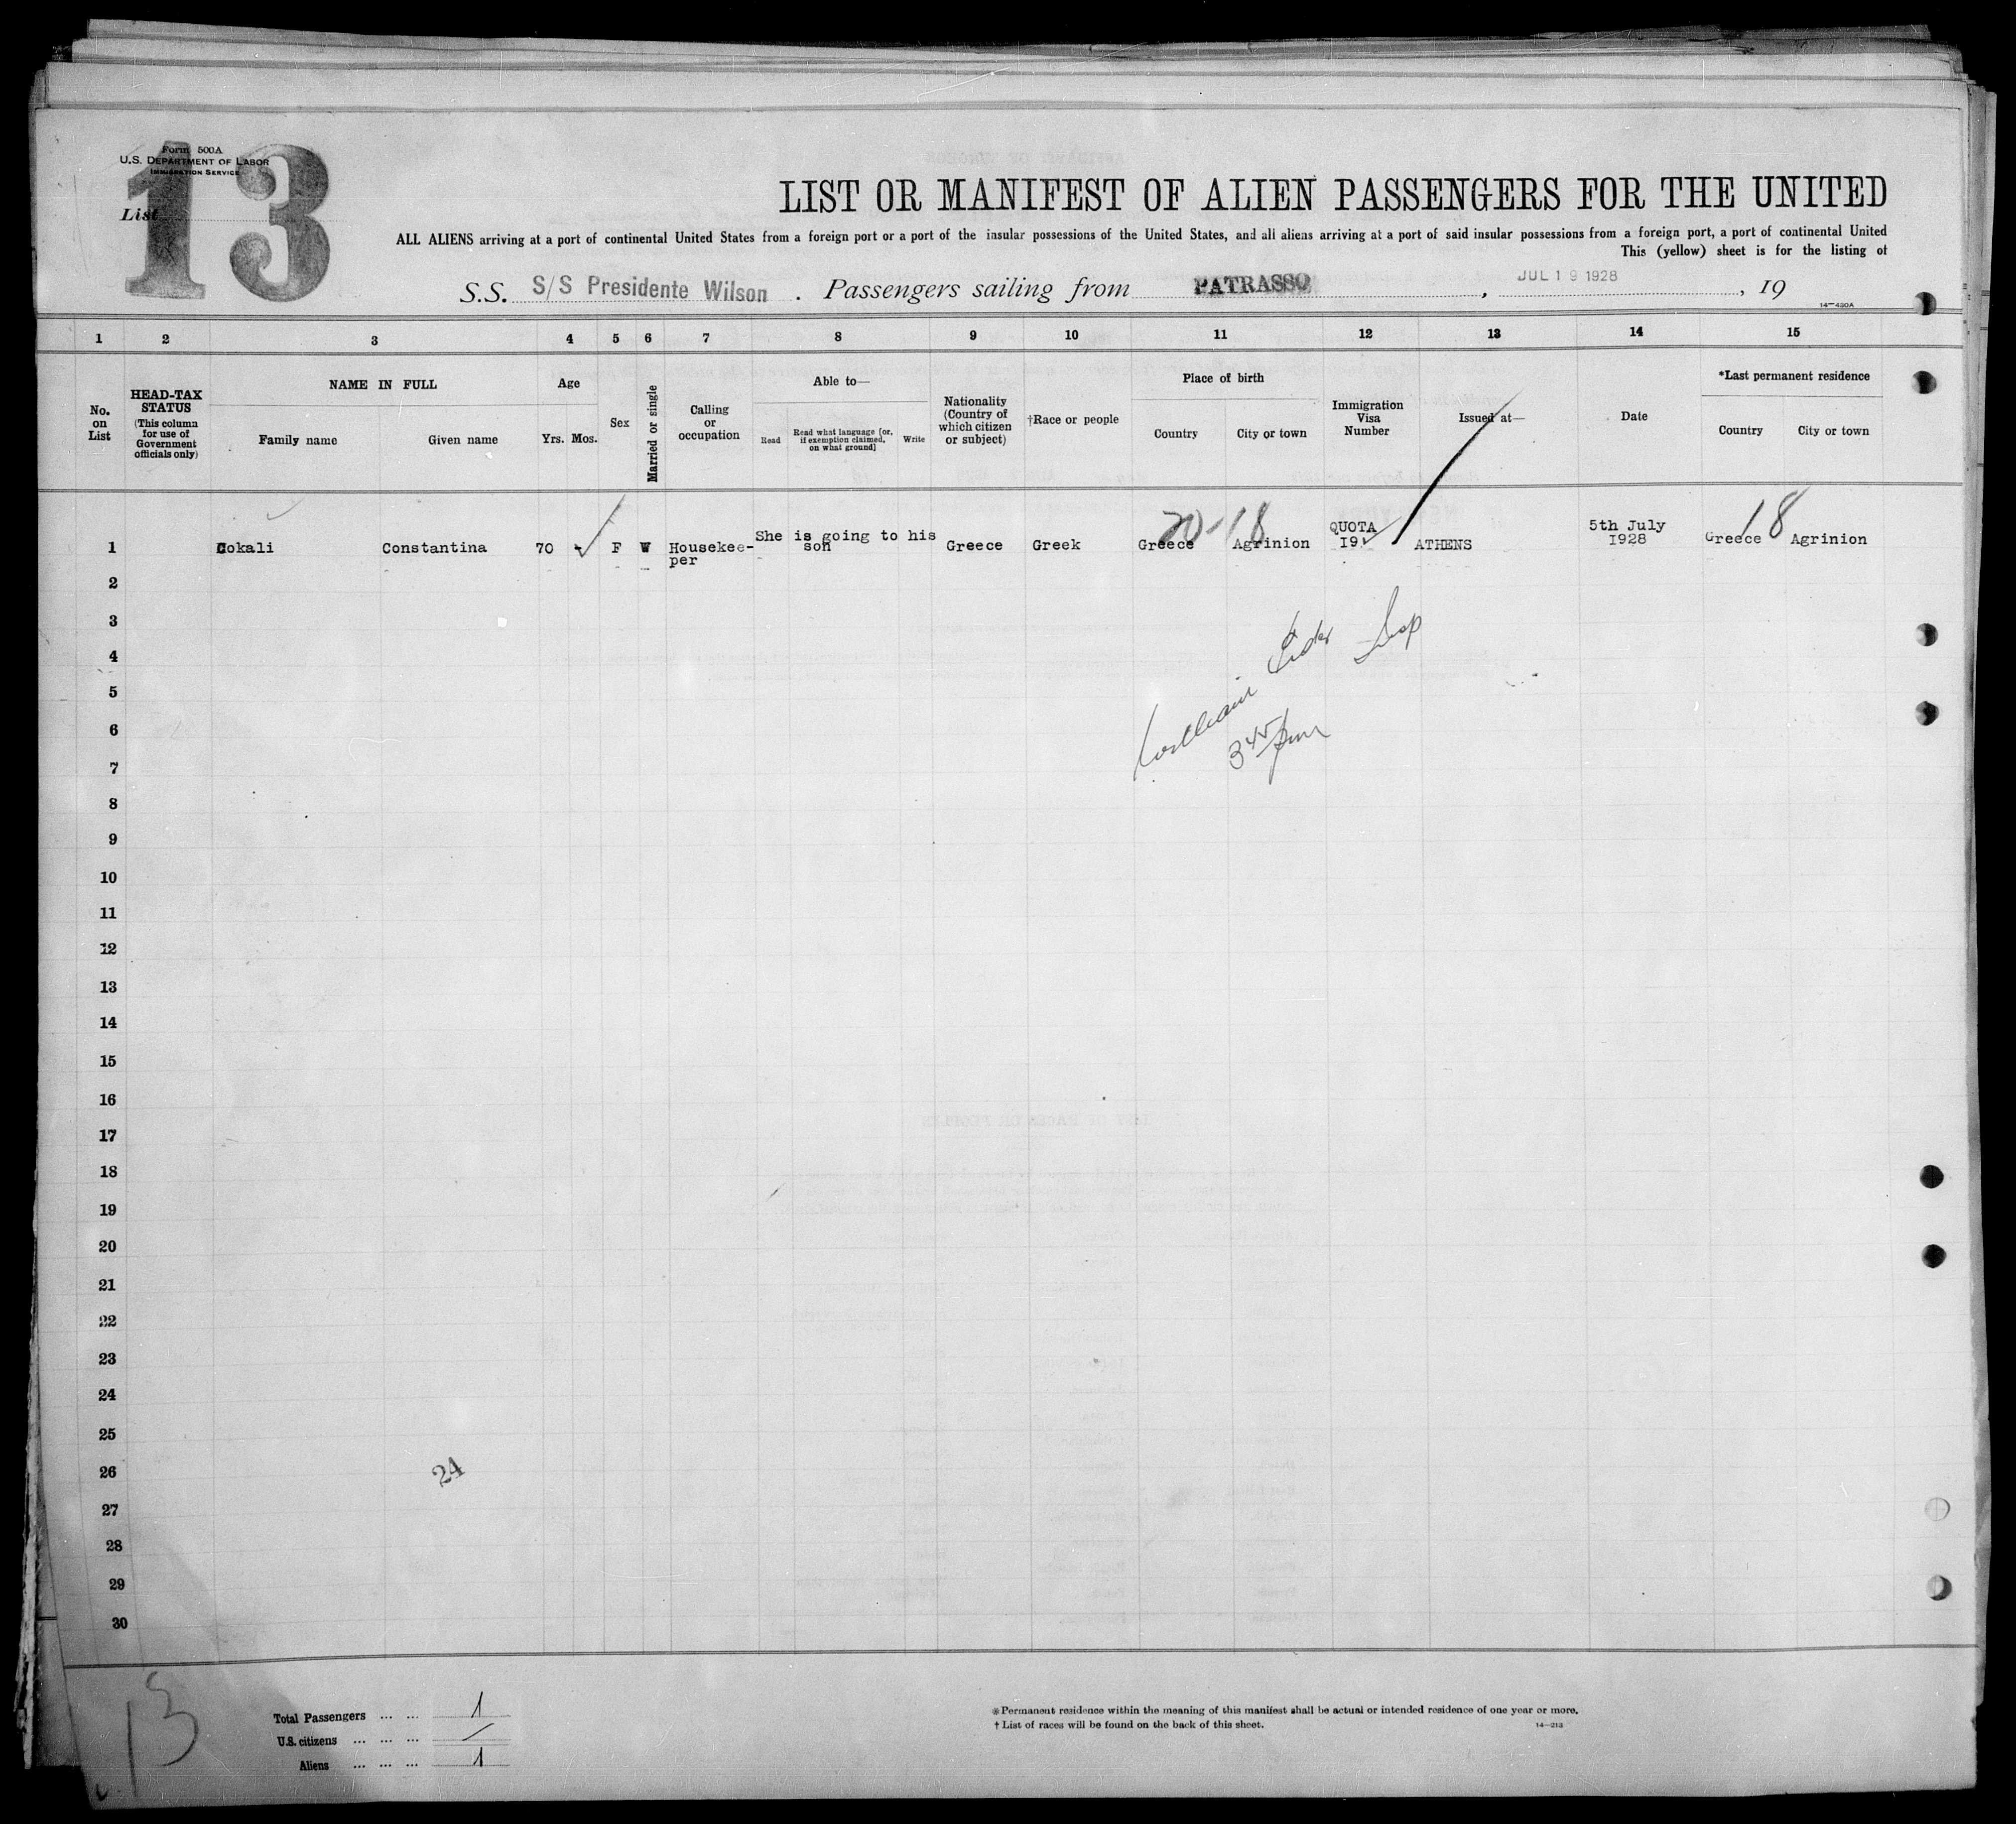 Form 500A
U.S. DEPARTMENT OF LABOR
IMMIGRATION SERVICE
List
13
LIST OR MANIFEST OF ALIEN PASSENGERS FOR THE UNITED
ALL ALIENS arriving at a port of continental United States from a foreign port or a port of the insular possessions of the United States, and all aliens arriving at a port of said insular possessions from a foreign port, a port of continental United
This (yellow) sheet is for the listing of
S.S. S/S Presidente Wilson . Passengers sailing from PATRASSO , JUL 19 1928 , 19
14—430A
1 2 3 4 5 6 7 8 9 10 11 12 13 14 15
No. on List
HEAD-TAX STATUS
(This column for use of Government officials only)
NAME IN FULL
Family name Given name
Age
Yrs. Mos.
Sex
Married or single
Calling or occupation
Able to—
Read Read what language [or, if exemption claimed, on what ground] Write
Nationality (Country of which citizen or subject)
†Race or people
Place of birth
Country City or town
Immigration Visa Number
Issued at—
Date
*Last permanent residence
Country City or town
20-18 18
1 Cokali Constantina 70 - F W Housekee-per She is going to his son Greece Greek Greece Agrinion QUOTA 19. ATHENS 5th July 1928 Greece Agrinion
2
3
4
5
William Insp
6
3 45 pm
7
8
9
10
11
12
13
14
15
16
17
18
19
20
21
22
23
24
25
26
24
27
28
29
30
13
Total Passengers ... ... 1
U.S. citizens ... ... ... /
Aliens ... ... ... 1
*Permanent residence within the meaning of this manifest shall be actual or intended residence of one year or more.
†List of races will be found on the back of this sheet. 14—213